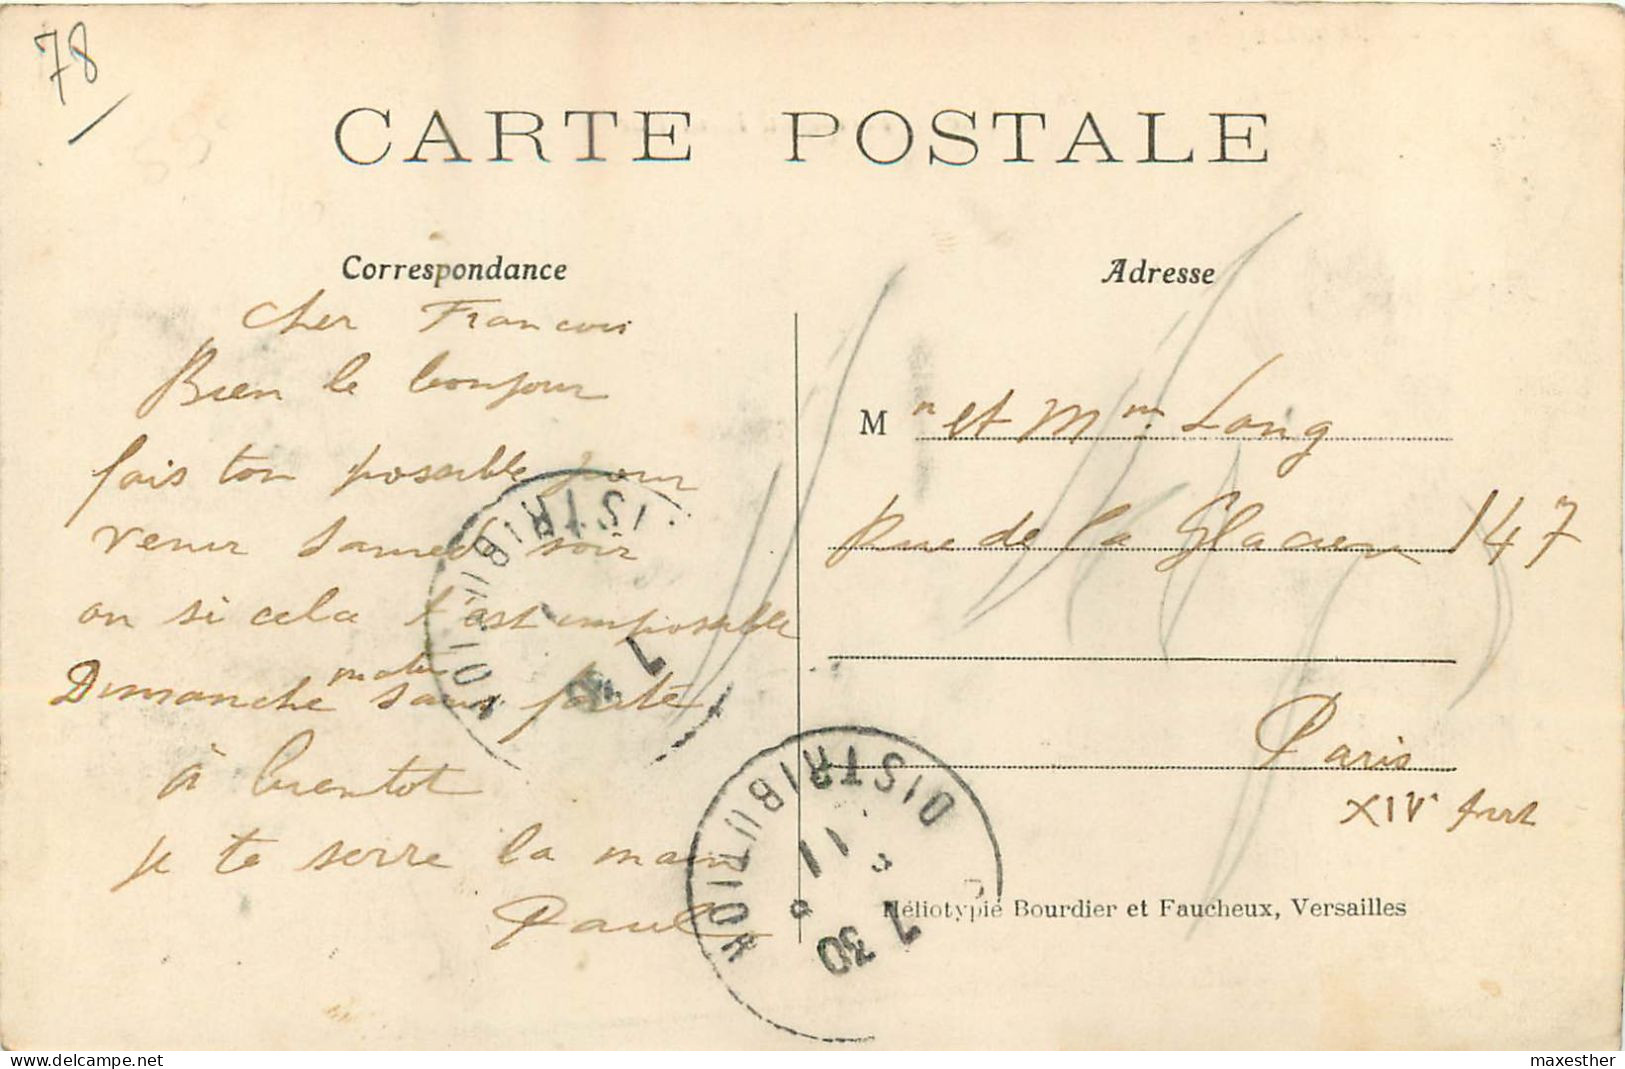 78
CARTE POSTALE
Correspondance
Adresse
Cher Francois
Bien le bonjour
fais ton possible pour
venir Samedi soir
ou si cela t'est impossible
Dimanche matin sans faute
à bientot
je te serre la main
Paul
M r et Mme Lang
Rue de la Glacière 147
Paris
XIVe Arrt
DISTRIBUTION
7
DISTRIBUTION
11
7 30
Héliotypie Bourdier et Faucheux, Versailles
delcampe.net
maxesther